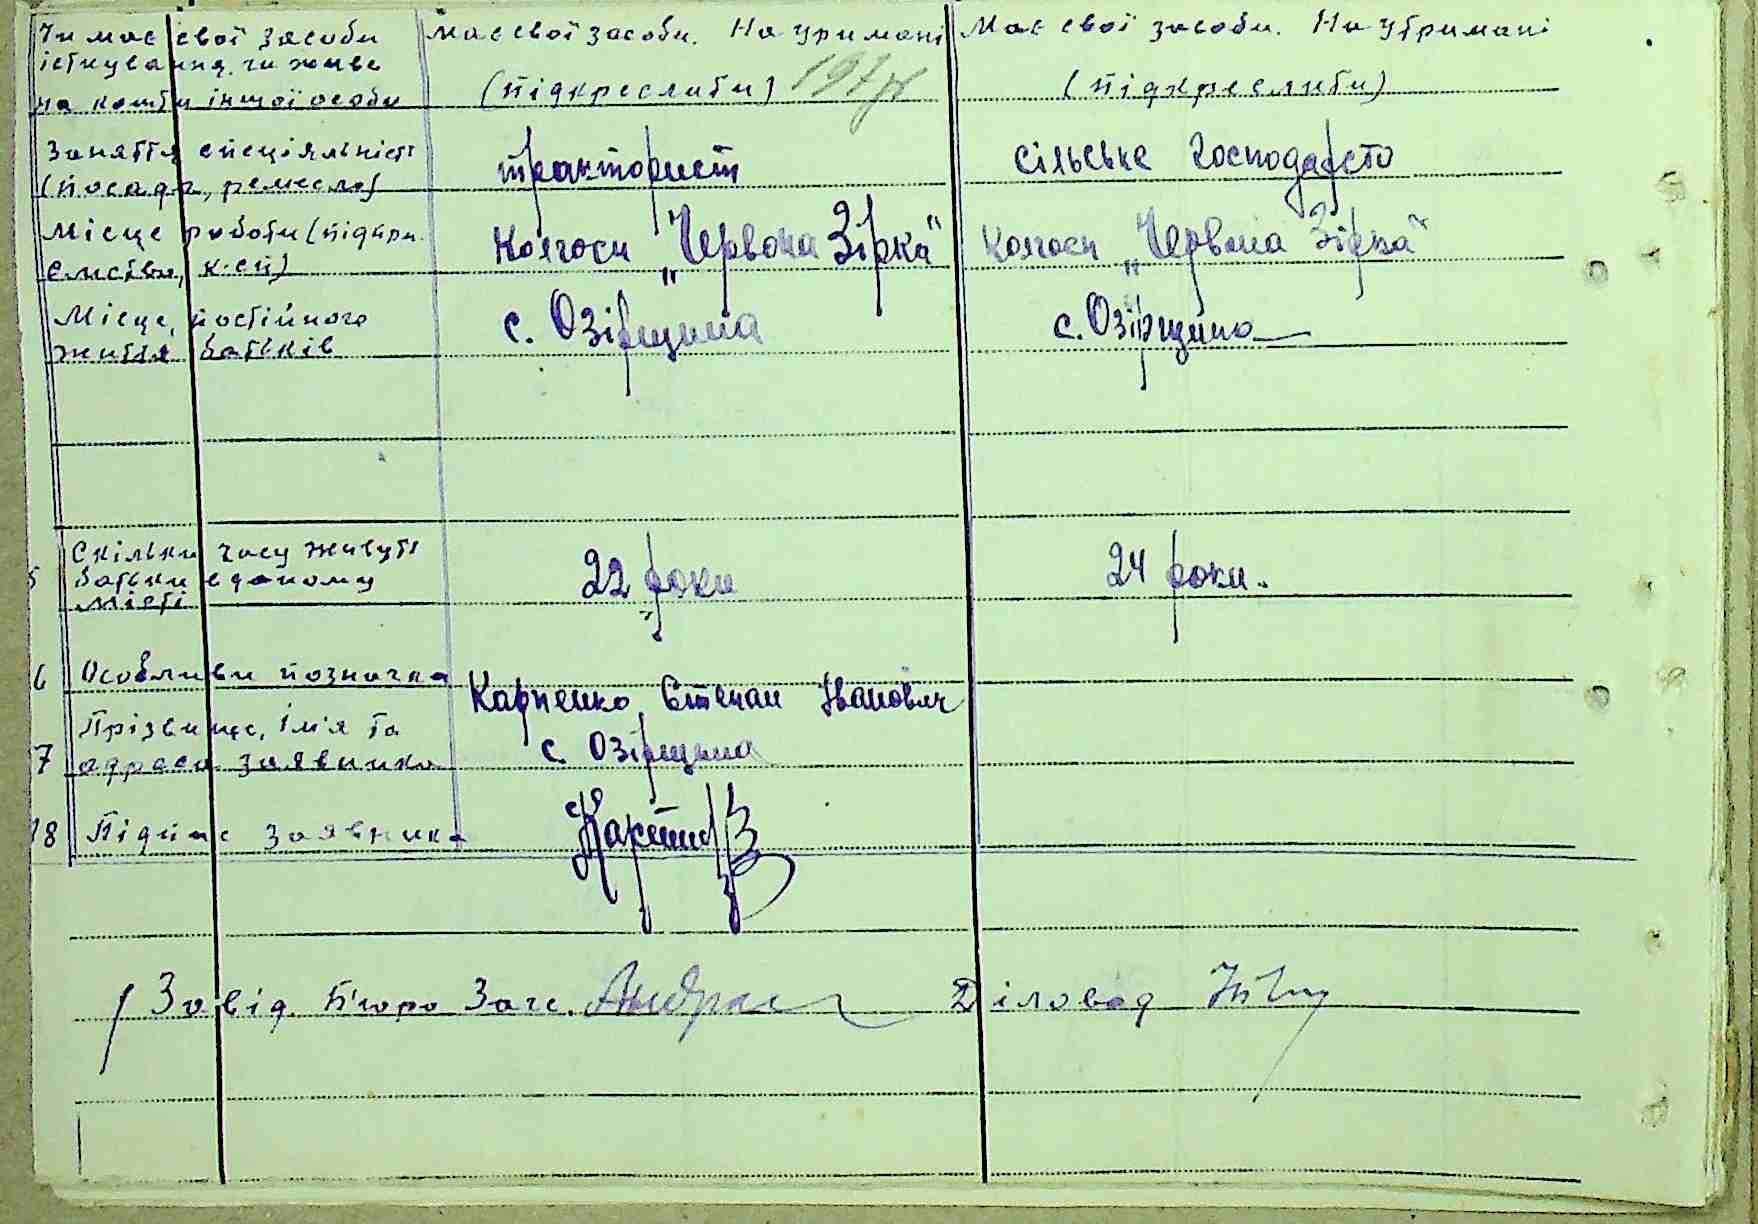 Чи має свої засоби має свої засоби. На уримані Має свої засоби. На утримані
існування, чи живе
на кошти іншої особи (підкреслити) (підкреслити)
Заняття, спеціяльність тракторист сільське господарсто
(посада, ремесло)
Місце роботи (підпри- Колгосп „Червона Зірка“ Колгосп „Червона Зірка“
ємства, к-сп)
Місце, постійного с. Озірщина с. Озірщина
життя батьків
Скільки часу живуть
5 батьки в даному 22 роки 24 роки.
місті
6 Особливи позначка
Карпенко Степан Іванович
Прізвище, ім'я та с. Озірщина
7 адреса заявника
18 Підпис заявника
Завід. Бюро Загс. Діловод